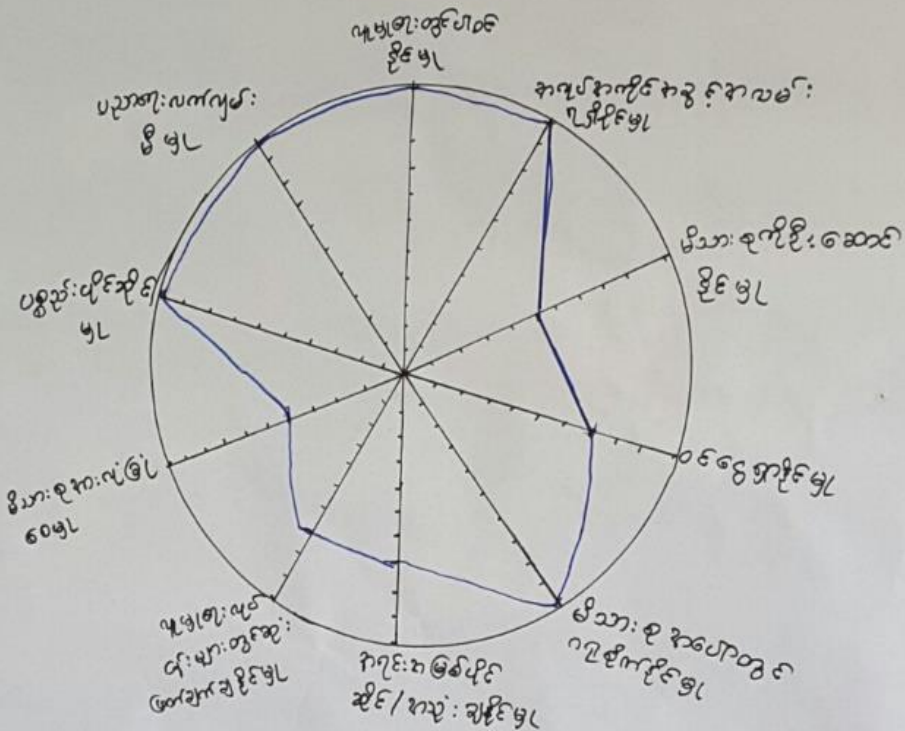 လူမှုရေးတွင်ပါဝင်
နိုင်မှု
အလုပ်အကိုင်အခွင့်အလမ်း
ရရှိနိုင်မှု
မိသားစုကိုဦးဆောင်
နိုင်မှု
ဝင်ငွေရှာနိုင်မှု
မိသားစုအပေါ်တွင်
ဂရုစိုက်နိုင်မှု
အရင်းအမြစ်ပိုင်
ဆိုင်/အသုံးချနိုင်မှု
လူမှုရေးလုပ်
ငန်းများတွင်ဆုံး
ဖြတ်ချက်ချနိုင်မှု
မိသားစုအားလုံခြုံ
စေမှု
ပစ္စည်းပိုင်ဆိုင်
မှု
ပညာရေးလက်လှမ်း
မှီမှု